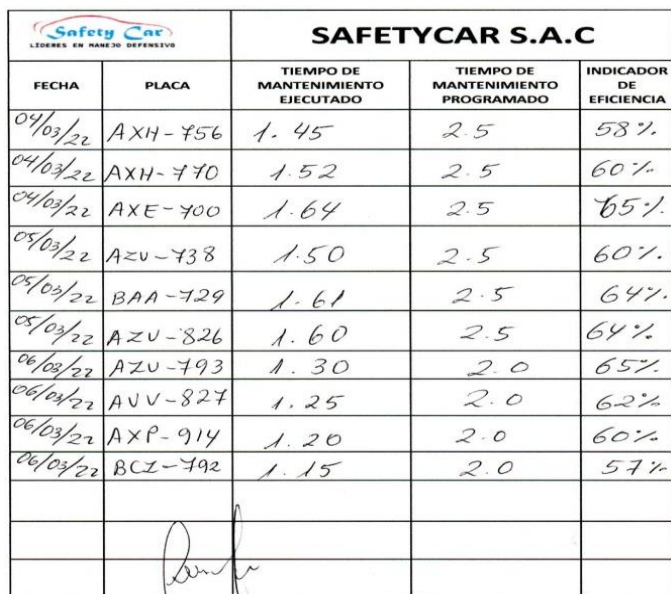 Safety Car
LÍDERES EN MANEJO DEFENSIVO
SAFETYCAR S.A.C
FECHA PLACA TIEMPO DE MANTENIMIENTO EJECUTADO TIEMPO DE MANTENIMIENTO PROGRAMADO INDICADOR DE EFICIENCIA
04/03/22 AXH-756 1.45 2.5 58%
04/03/22 AXH-770 1.52 2.5 60%
04/03/22 AXE-700 1.64 2.5 65%
05/03/22 AZU-738 1.50 2.5 60%
05/03/22 BAA-729 1.61 2.5 64%
05/03/22 AZU-826 1.60 2.5 64%
06/03/22 AZU-793 1.30 2.0 65%
06/03/22 AVV-827 1.25 2.0 62%
06/03/22 AXP-914 1.20 2.0 60%
06/03/22 BCZ-792 1.15 2.0 57%